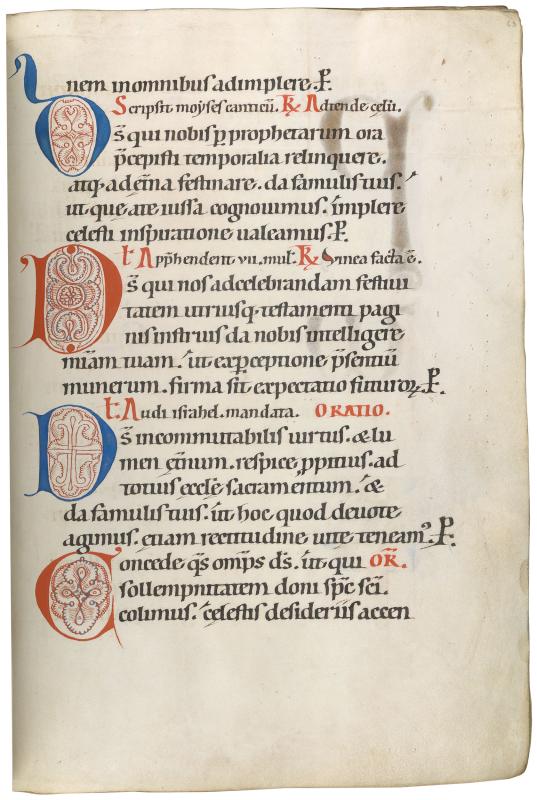 nem in omnibus adimplere. P.
Scripsit moyses canticū. R Adtende celū.
Ds qui nobis p prophetarum ora
p̄cepisti temporalia relinquere.
atq; ad et̄na festinare. da famulis tuis.
ut que a te iussa cognouimus. implere
celesti inspiratione ualeamus. P.
t App̄hendent vii. mul. R Vinea facta ē.
Ds̄ qui nos ad celebrandam festiui
tatem utriusq; testamenti pagi
nis instruis da nobis intelligere
miām tuam. ut ex p̄ceptione p̄sentiū
munerum. firma sit expectatio futuroꝝ. P.
t. Audi israhel. mandata. ORATIO.
Ds̄ incommutabilis uirtus. & lu
men et̄num. respice ppitius. ad
totius eccle sacramentum. &
da famulis tuis. ut hoc quod deuote
agimus. etiam rectitudine uite teneam᷒. P.
Concede qs omps ds. ut qui OR.
sollempnitatem doni spc sci.
colimus. celestis desideriis accen